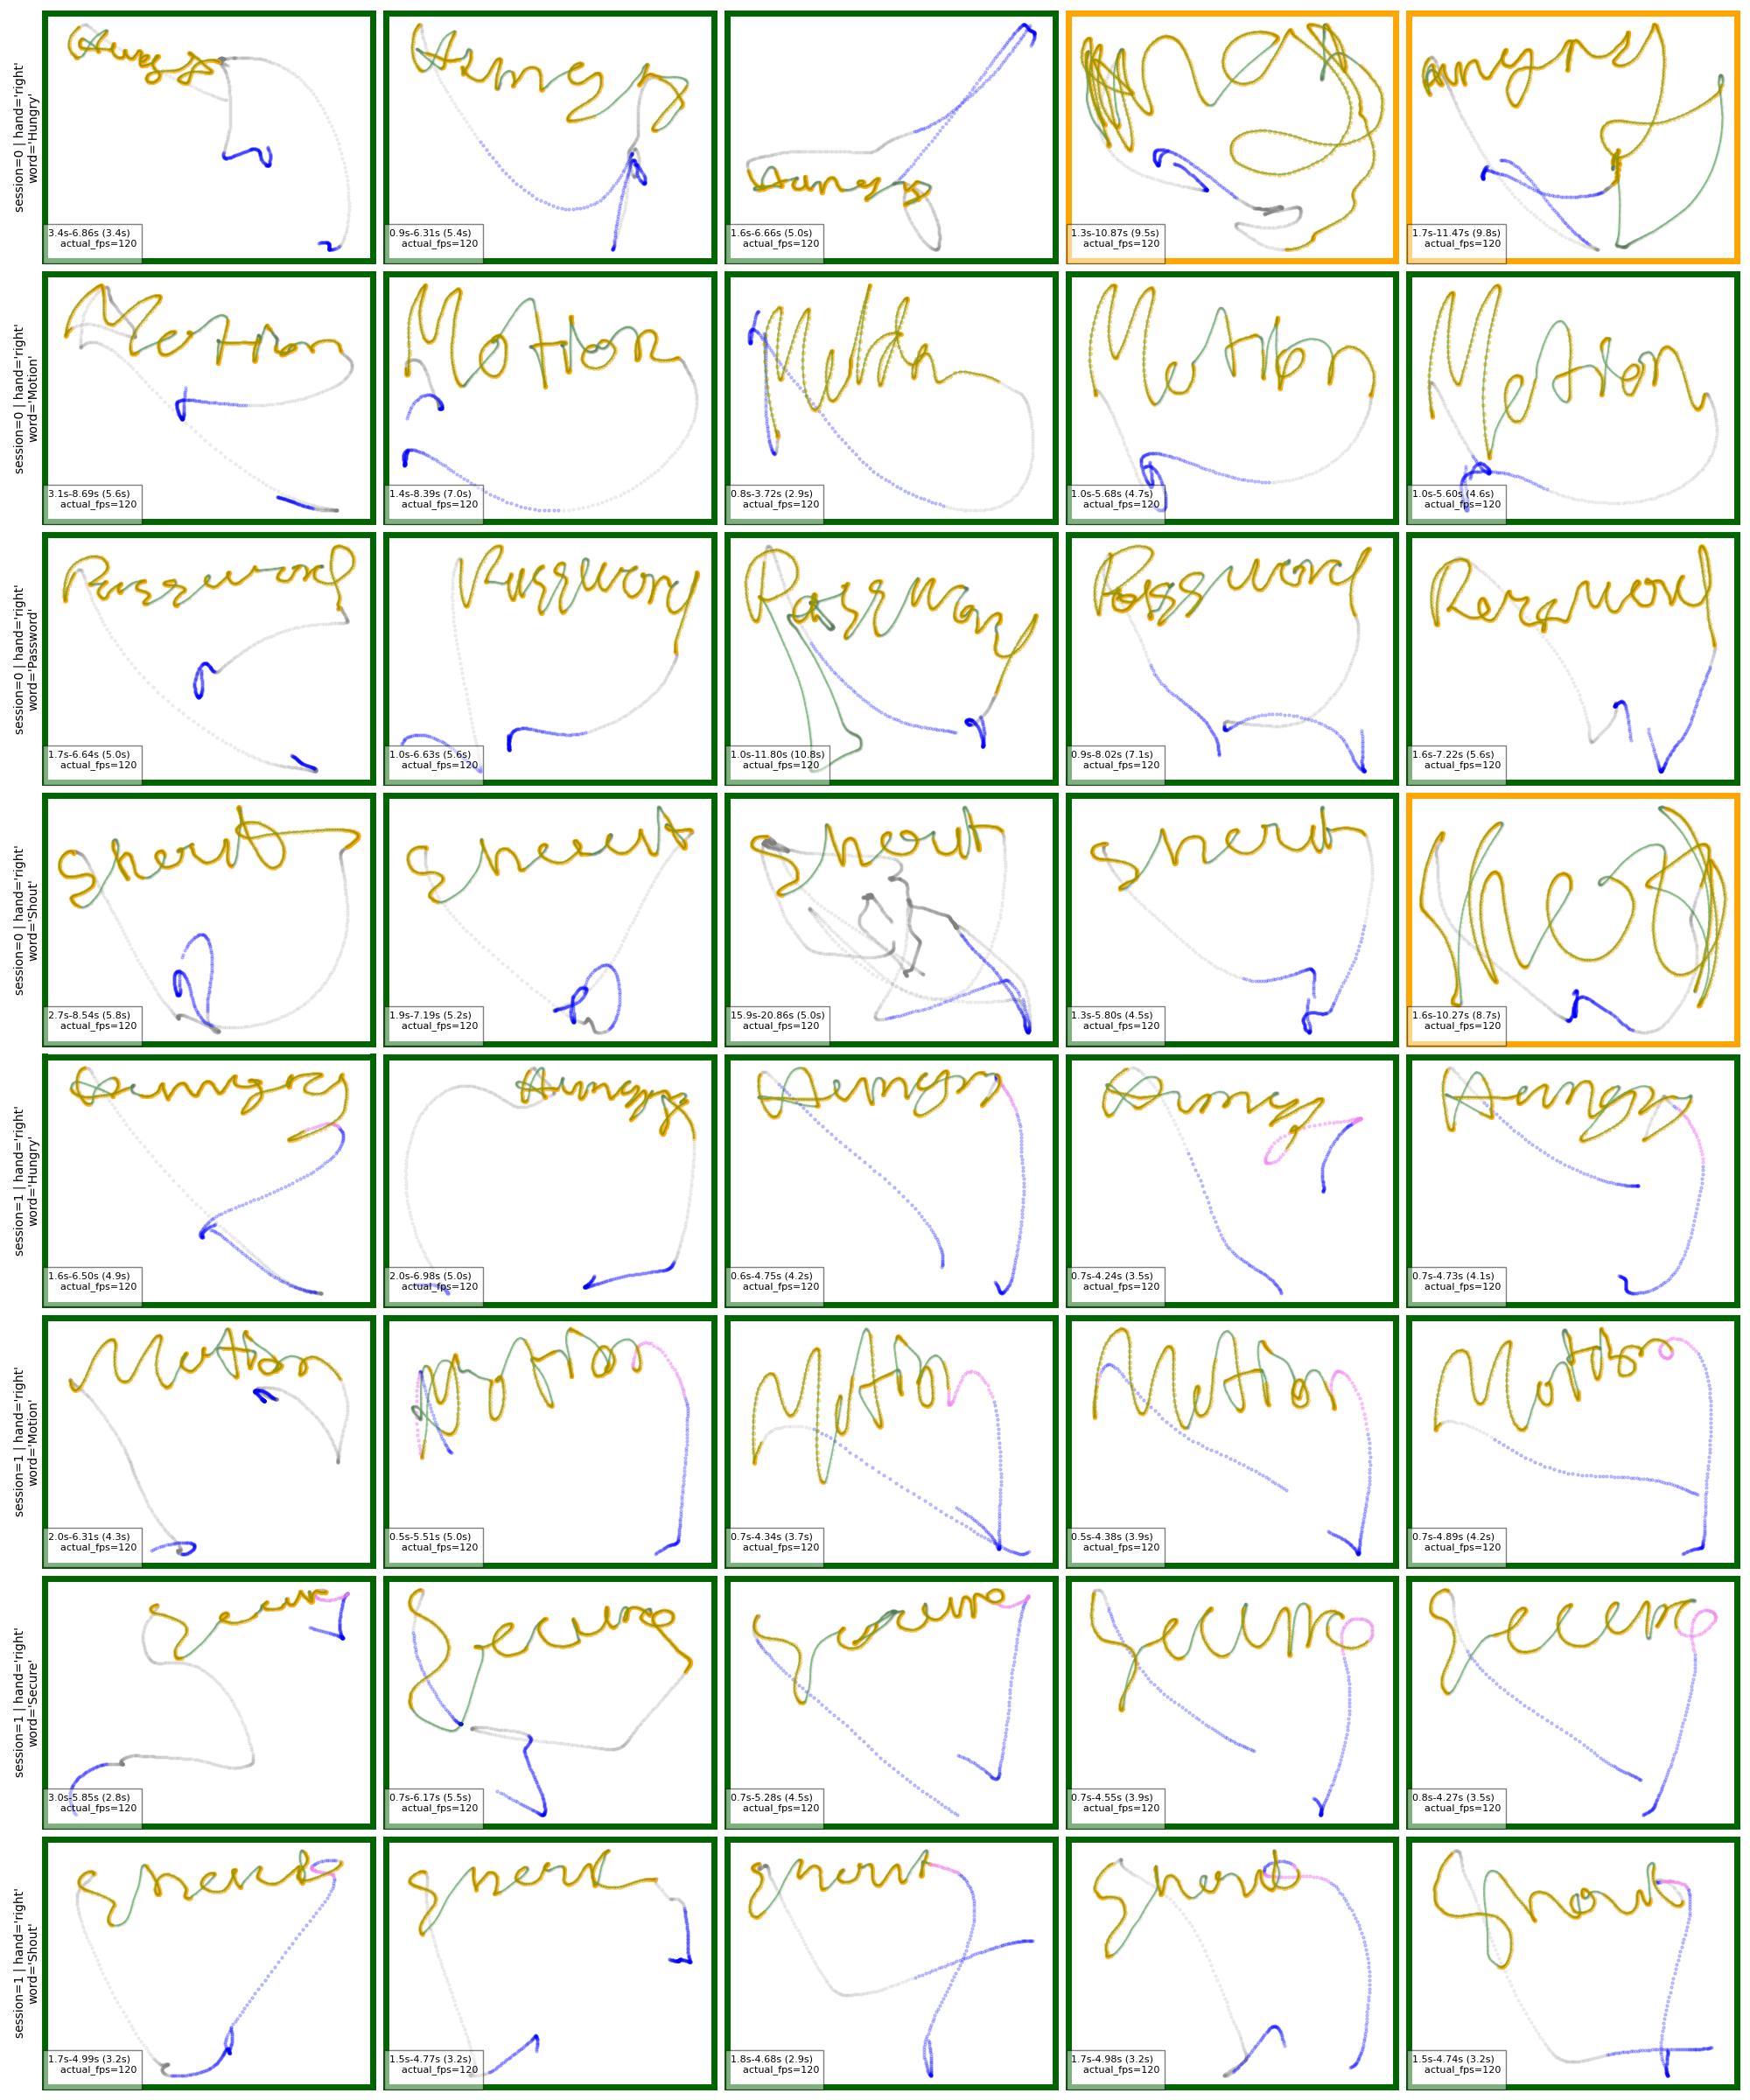 session=0 | hand='right'
word='Hungry'
3.4s-6.86s (3.4s)
actual_fps=120
0.9s-6.31s (5.4s)
actual_fps=120
1.6s-6.66s (5.0s)
actual_fps=120
1.3s-10.87s (9.5s)
actual_fps=120
1.7s-11.47s (9.8s)
actual_fps=120
session=0 | hand='right'
word='Motion'
Motion Motion Motion Motion
3.1s-8.69s (5.6s)
actual_fps=120
1.4s-8.39s (7.0s)
actual_fps=120
0.8s-3.72s (2.9s)
actual_fps=120
1.0s-5.68s (4.7s)
actual_fps=120
1.0s-5.60s (4.6s)
actual_fps=120
session=0 | hand='right'
word='Password'
Password
1.7s-6.64s (5.0s)
actual_fps=120
1.0s-6.63s (5.6s)
actual_fps=120
1.0s-11.80s (10.8s)
actual_fps=120
0.9s-8.02s (7.1s)
actual_fps=120
1.6s-7.22s (5.6s)
actual_fps=120
session=0 | hand='right'
word='Shout'
Shout Shout Shout
2.7s-8.54s (5.8s)
actual_fps=120
1.9s-7.19s (5.2s)
actual_fps=120
15.9s-20.86s (5.0s)
actual_fps=120
1.3s-5.80s (4.5s)
actual_fps=120
1.6s-10.27s (8.7s)
actual_fps=120
session=1 | hand='right'
word='Hungry'
1.6s-6.50s (4.9s)
actual_fps=120
2.0s-6.98s (5.0s)
actual_fps=120
0.6s-4.75s (4.2s)
actual_fps=120
0.7s-4.24s (3.5s)
actual_fps=120
0.7s-4.73s (4.1s)
actual_fps=120
session=1 | hand='right'
word='Motion'
Motion Motion Motion Motion Motion
2.0s-6.31s (4.3s)
actual_fps=120
0.5s-5.51s (5.0s)
actual_fps=120
0.7s-4.34s (3.7s)
actual_fps=120
0.5s-4.38s (3.9s)
actual_fps=120
0.7s-4.89s (4.2s)
actual_fps=120
session=1 | hand='right'
word='Secure'
Secure Secure Secure Secure
3.0s-5.85s (2.8s)
actual_fps=120
0.7s-6.17s (5.5s)
actual_fps=120
0.7s-5.28s (4.5s)
actual_fps=120
0.7s-4.55s (3.9s)
actual_fps=120
0.8s-4.27s (3.5s)
actual_fps=120
session=1 | hand='right'
word='Shout'
Shout Shout Shout
1.7s-4.99s (3.2s)
actual_fps=120
1.5s-4.77s (3.2s)
actual_fps=120
1.8s-4.68s (2.9s)
actual_fps=120
1.7s-4.98s (3.2s)
actual_fps=120
1.5s-4.74s (3.2s)
actual_fps=120